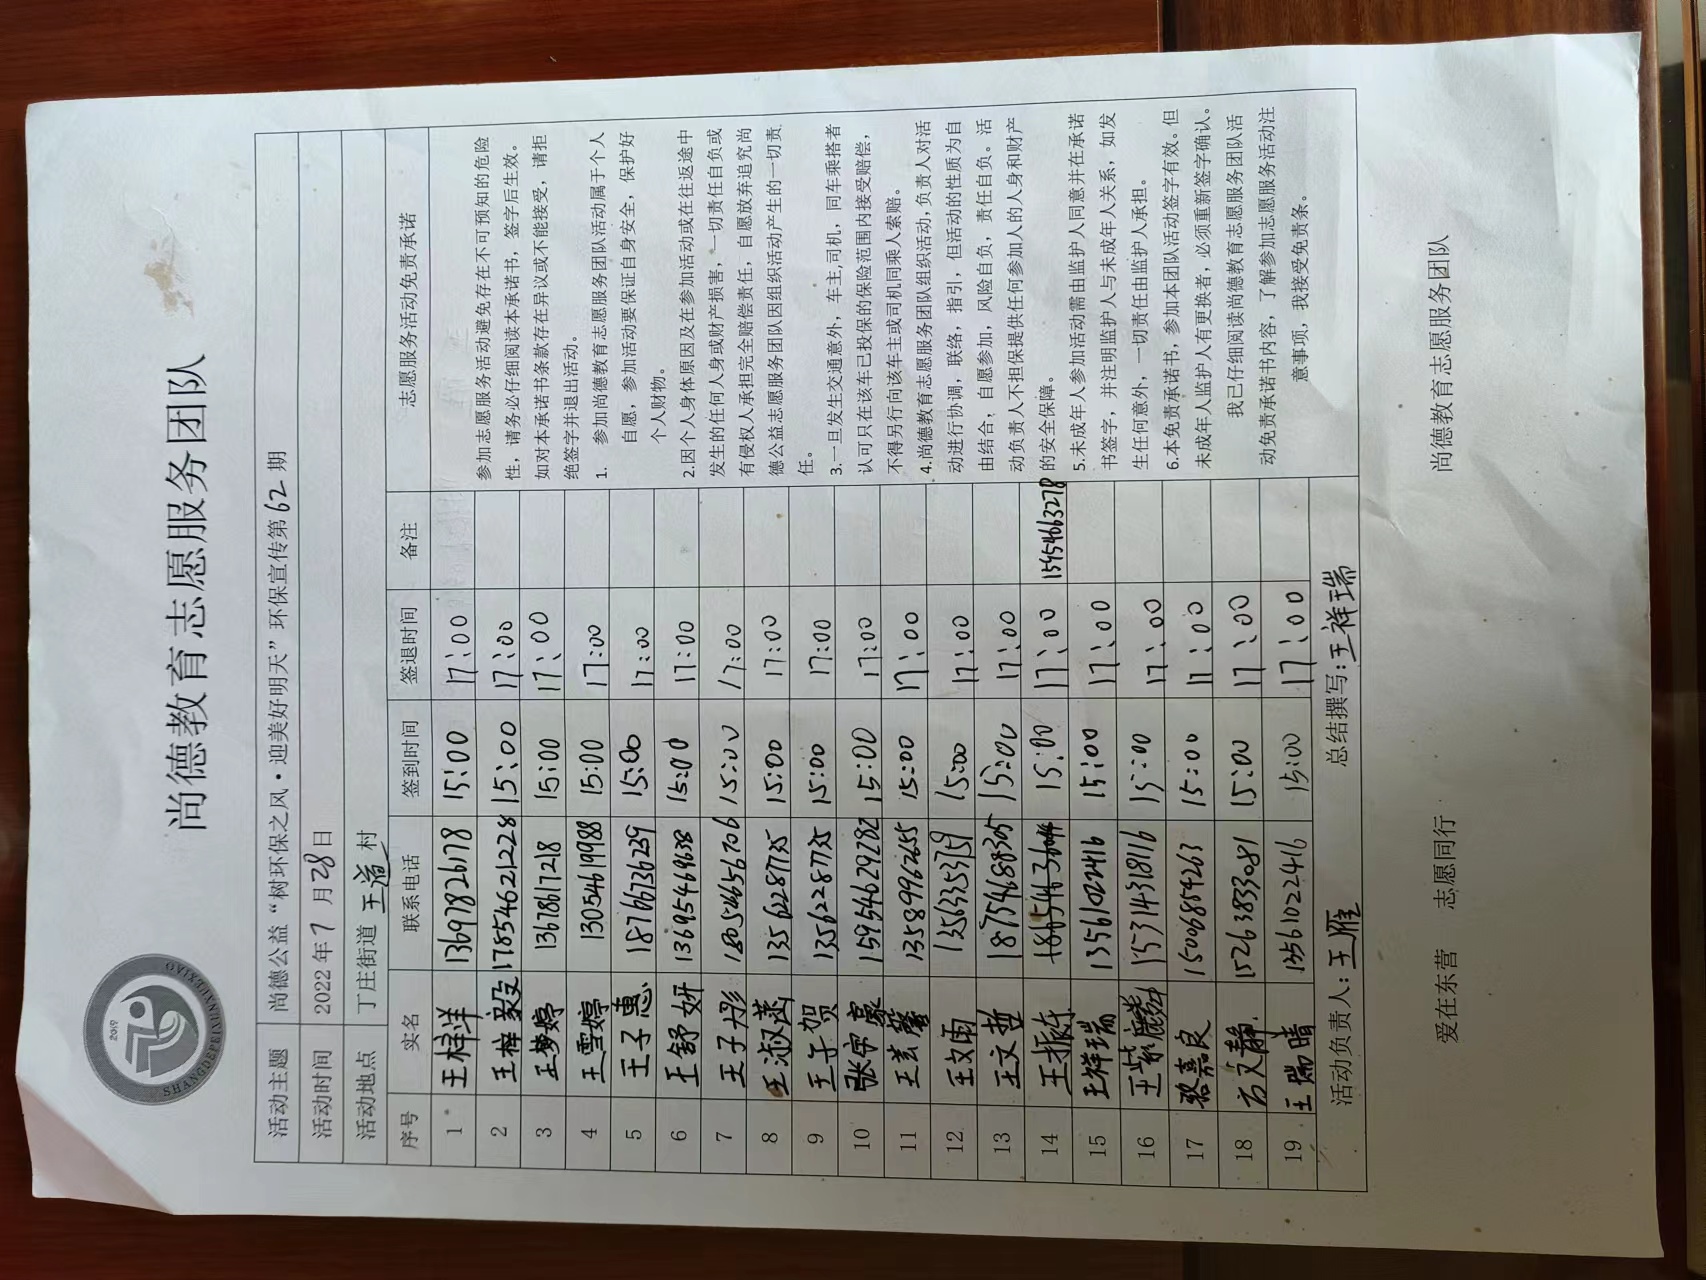 尚德教育志愿服务团队
SHANGDEPEIXUNXUEXIAO
2019
活动主题 尚德公益“树环保之风·迎美好明天”环保宣传第62期
活动时间 2022年7月28日
活动地点 丁庄街道王道村
序号 实名 联系电话 签到时间 签退时间 备注 志愿服务活动免责承诺
1 王梓洋 13697826178 15:00 17:00
2 王梓毅 17854621228 15:00 17:00
3 王梦婷 13678617218 15:00 17:00
4 王雪婷 13054619988 15:00 17:00
5 王子惠 18766736239 15:00 17:00
6 王舒妍 13695469638 15:00 17:00
7 王子彤 18054656706 15:00 17:00
8 王淑菡 13562287735 15:00 17:00
9 王子贺 13562287735 15:00 17:00
10 张宇豪 15954629282 15:00 17:00
11 王艺馨 13589962655 15:00 17:00
12 王文雨 13563353759 15:00 17:00
13 王文哲 18754688305 15:00 17:00
14 王振东 15:00 17:00 15954663278
15 王祥瑞 13561022416 15:00 17:00
16 王紫麟 15314318116 15:00 17:00
17 嘉良 15006854263 15:00 17:00
18 方文静 15263833081 15:00 17:00
19 王瑞晴 13561022416 15:00 17:00
参加志愿服务活动避免存在不可预知的危险
性，请务必仔细阅读本承诺书，签字后生效。
如对本承诺书条款存在异议或不能接受，请拒
绝签字并退出活动。
1. 参加尚德教育志愿服务团队活动属于个人
自愿，参加活动要保证自身安全，保护好
个人财物。
2.因个人身体原因及在参加活动或在往返途中
发生的任何人身或财产损害，一切责任自负或
有侵权人承担完全赔偿责任，自愿放弃追究尚
德公益志愿服务团队因组织活动产生的一切责
任。
3.一旦发生交通意外，车主,司机，同车乘搭者
认可只在该车已投保的保险范围内接受赔偿，
不得另行向该车主或司机同乘人索赔。
4.尚德教育志愿服务团队组织活动,负责人对活
动进行协调，联络，指引，但活动的性质为自
由结合，自愿参加，风险自负，责任自负。活
动负责人不担保提供任何参加人的人身和财产
的安全保障。
5.未成年人参加活动需由监护人同意并在承诺
书签字，并注明监护人与未成年人关系，如发
生任何意外，一切责任由监护人承担。
6.本免责承诺书，参加本团队活动签字有效。但
未成年人监护人有更换者，必须重新签字确认。
我已仔细阅读尚德教育志愿服务团队活
动免责承诺书内容，了解参加志愿服务活动注
意事项，我接受免责条。
活动负责人：王雁 总结撰写：王祥瑞
爱在东营 志愿同行 尚德教育志愿服务团队